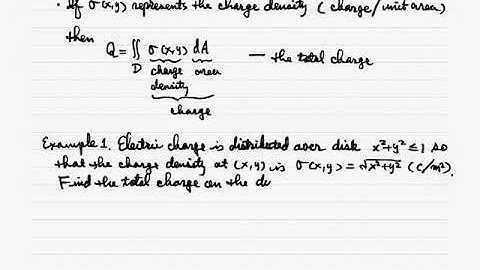 • If σ(x,y) represents the charge density (charge/unit area)
then
Q = ∬ σ(x,y) dA — the total charge
D charge area
density
charge
Example 1. Electric charge is distributed over disk x²+y² ≤ 1 so
that the charge density at (x,y) is σ(x,y) = √x²+y² (C/m²).
Find the total charge on the di